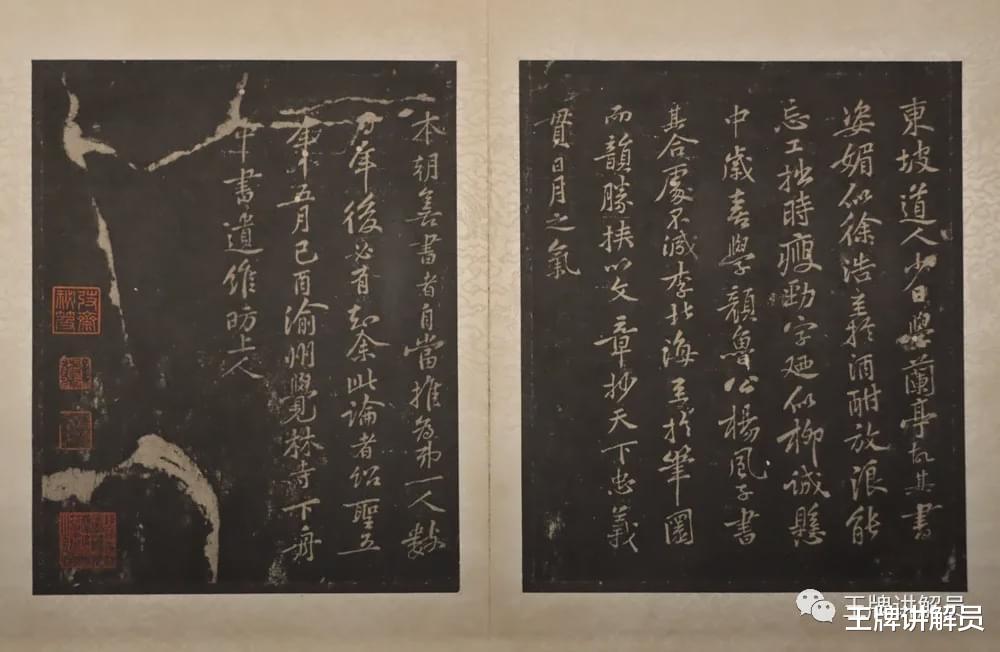 東坡道人少日學蘭亭故其書
姿媚似徐浩至於酒酣放浪能
忘工拙時瘦勁字廼似柳誠懸
中歲喜學顏魯公楊風子書
其合處不減李北海至於筆圜
而韻勝挾以文章妙天下忠義
貫日月之氣
本朝善書者自當推為第一人數
百年後必有知余此論者紹聖五
年五月己酉渝州覺林寺下舟
中書遺維昉上人
王牌讲解员
王牌讲解员